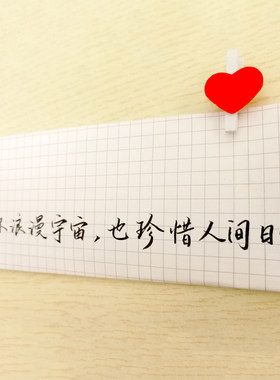 浪漫宇宙,也珍惜人间日